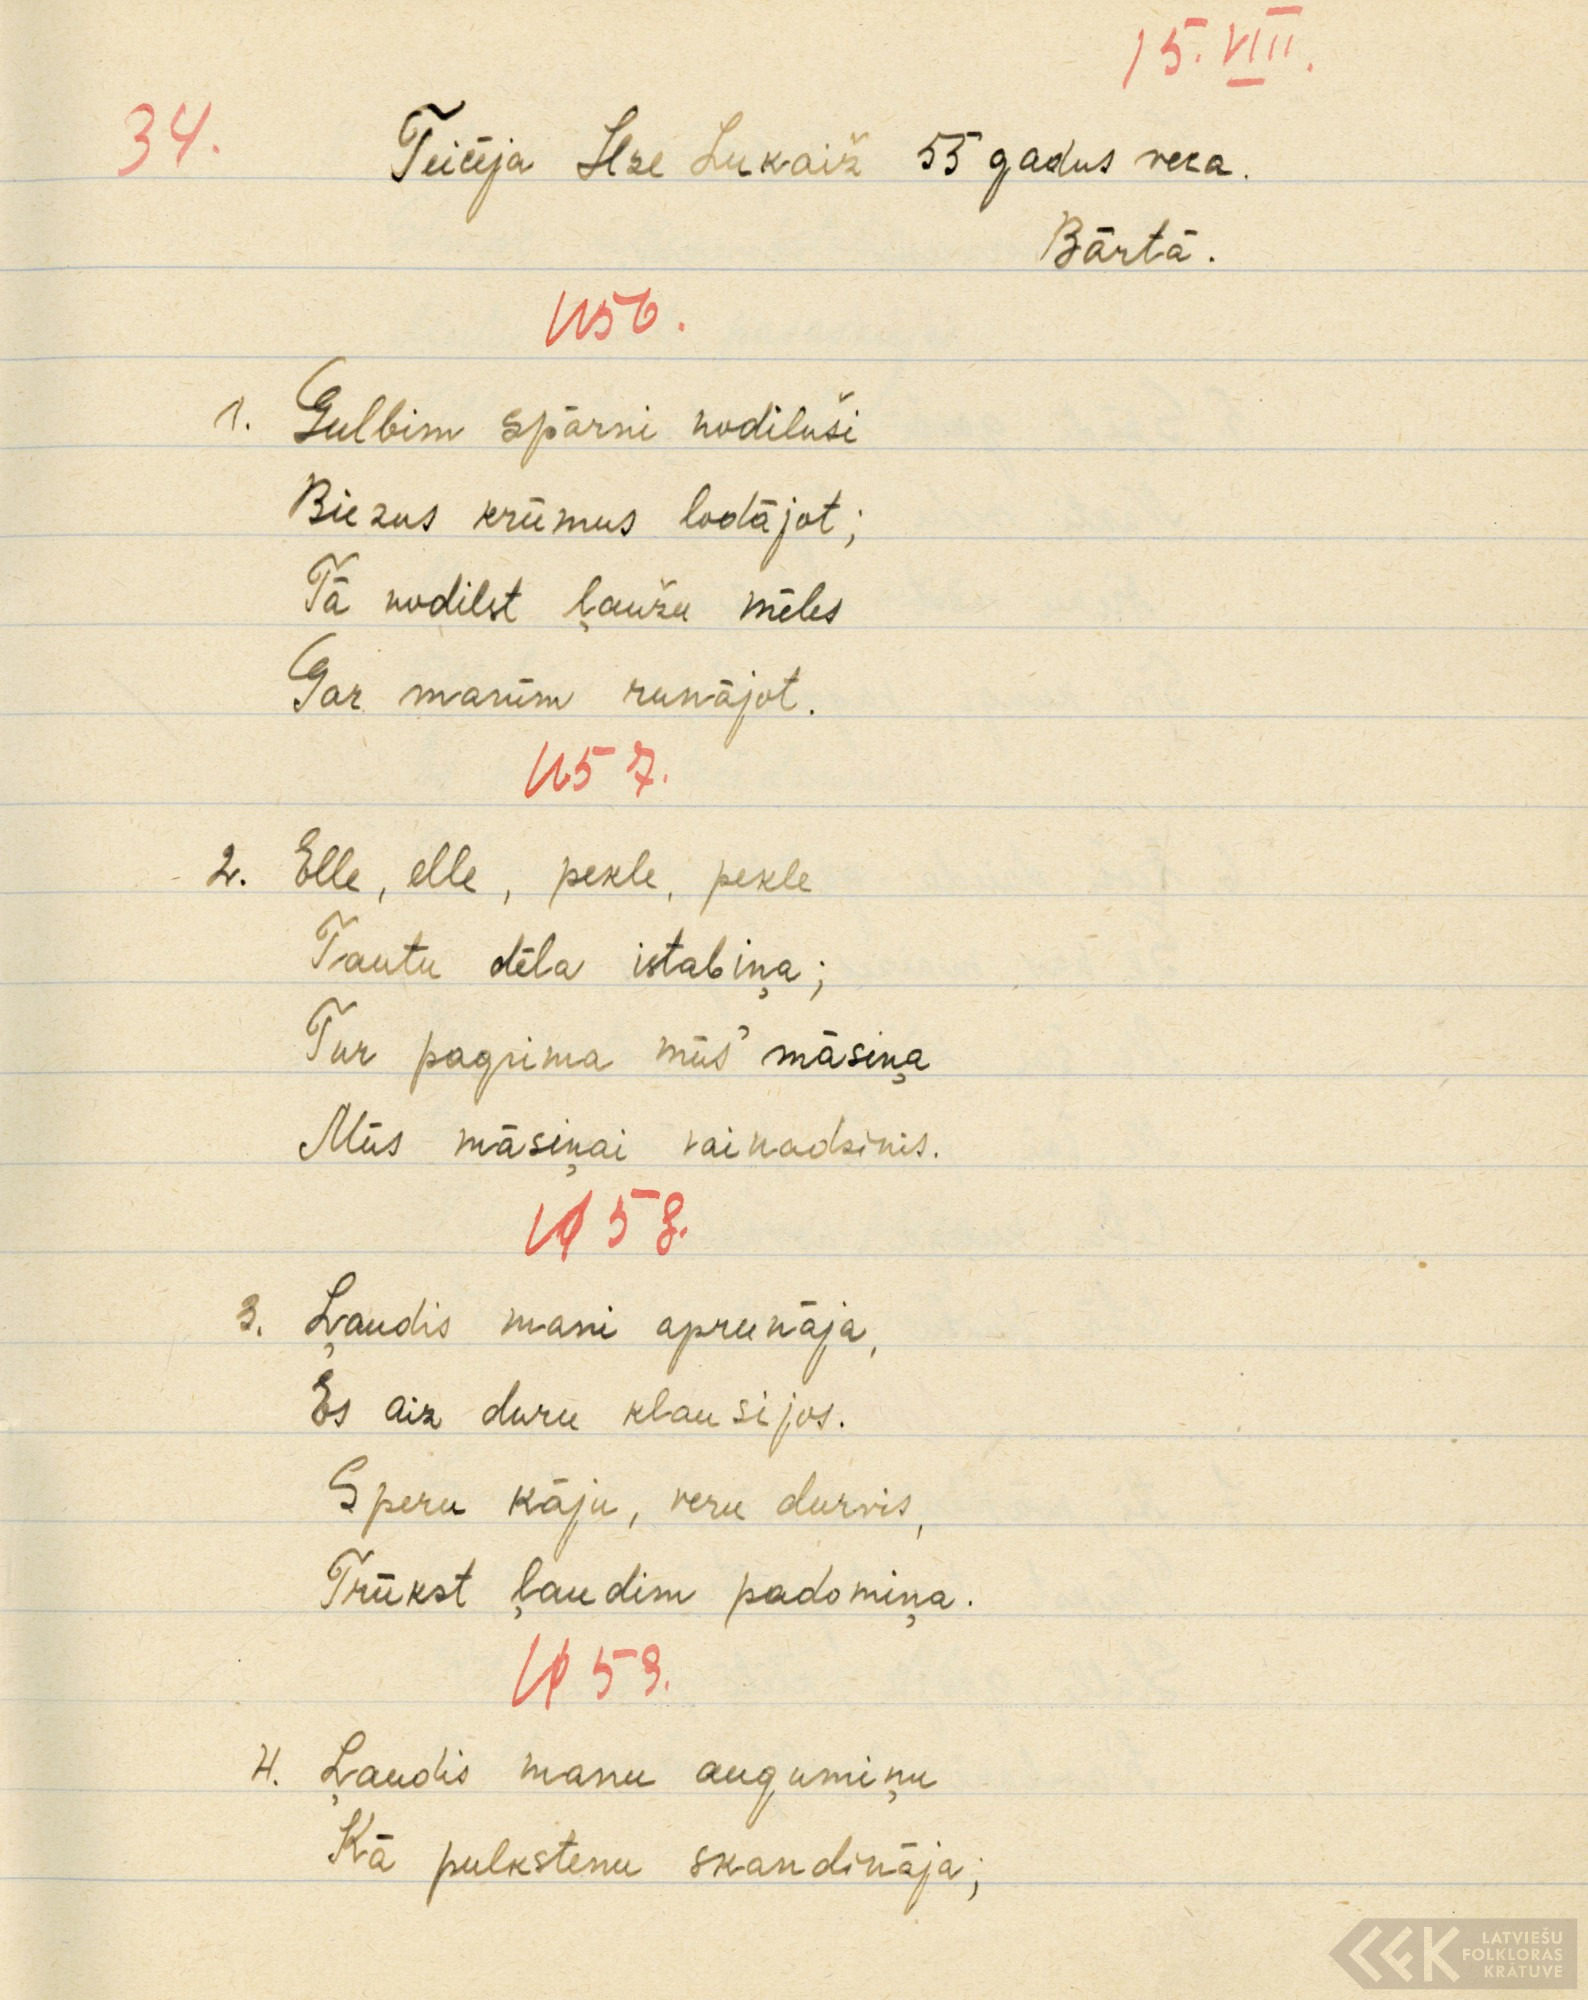 15. VIII.
34.
Teicēja Ilze Lukaiž 55 gadus veca.
Bārtā.
1156.
1. Gulbim spārni nodiluši
Biezus krūmus lodājot;
Tā nodilst ļaužu mēles
Gar manim runājot.
1157.
2. Elle, elle, pekle, pekle
Tautu dēla istabiņa;
Tur pagrima mūs' māsiņa
Mūs māsiņai vainadzinis.
1158.
3. Ļaudis mani aprunāja,
Es aiz duru klausijos.
Speru kāju, veru durvis,
Trūkst ļaudim padomiņa.
1159.
4. Ļaudis manu augumiņu
Kā pulkstenu skandināja;
LATVIEŠU
FOLKLORAS
KRĀTUVE